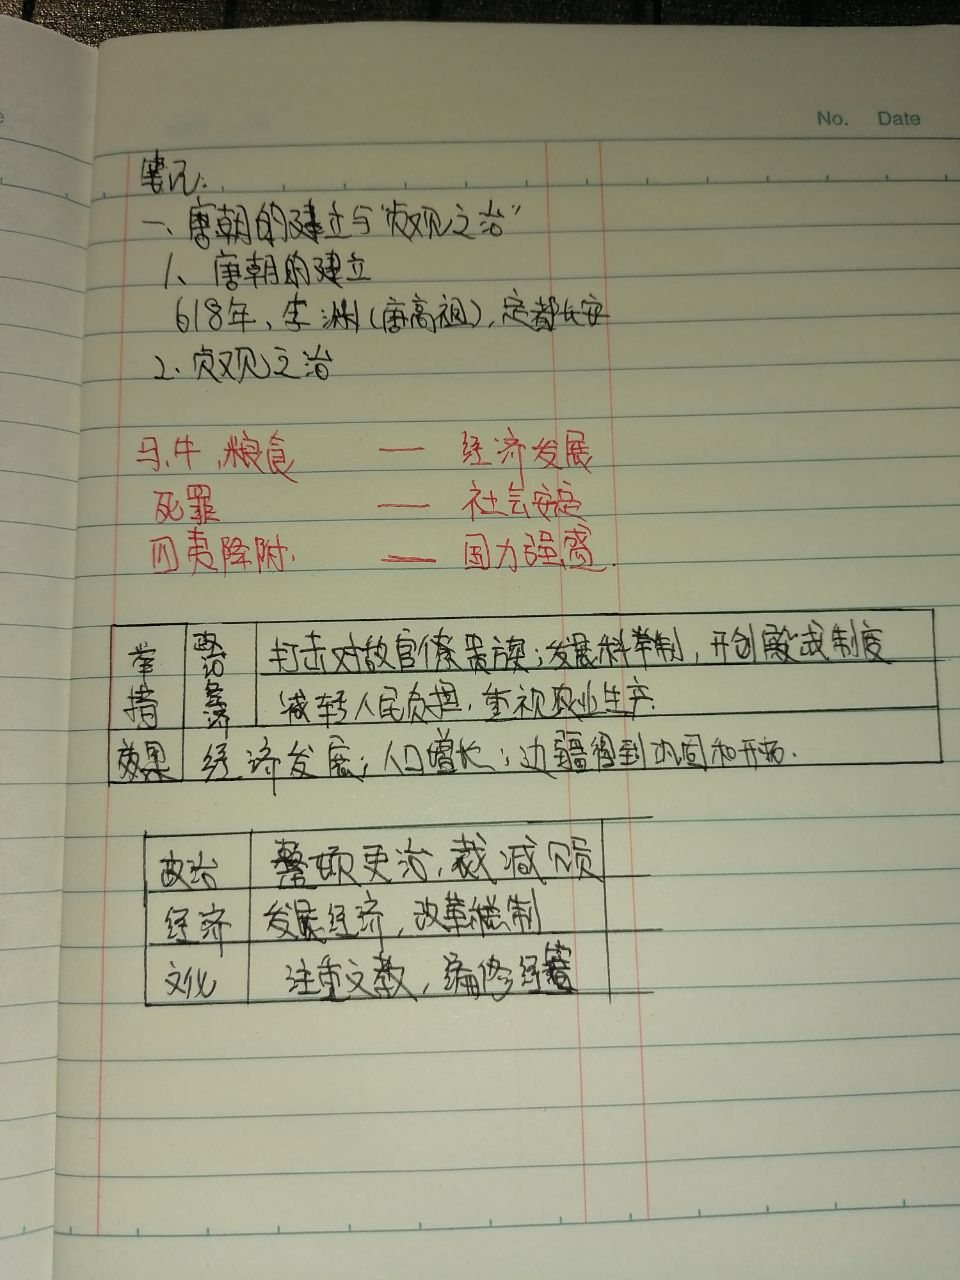 No. Date
笔记:
一、唐朝的建立与“贞观之治”
1、唐朝的建立
618年、李渊(唐高祖),定都长安
2、贞观之治
马、牛,粮食 — 经济发展
死罪 — 社会安定
四夷降附. — 国力强盛.
举措 政治 打击对敌官僚贵族;发展科举制,开创殿试制度
经济 减轻人民负担,重视农业生产.
效果 经济发展;人口增长;边疆得到巩固和开拓.
政治 整顿吏治,裁减冗员
经济 发展经济,改革税制
文化 注重文教,编修经籍